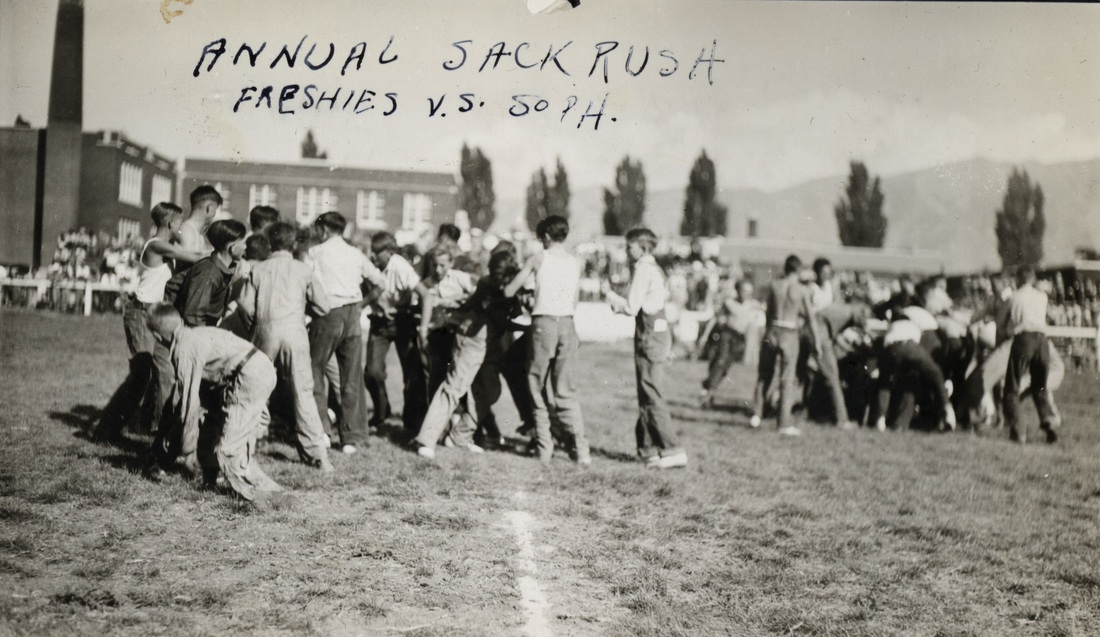 ANNUAL SACK RUSH
FRESHIES V.S. SOPH.